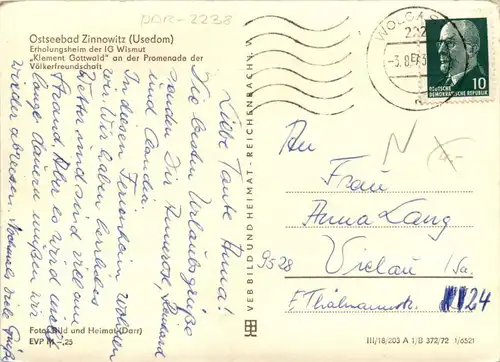 DDR-2238
Ostseebad Zinnowitz (Usedom)
Erholungsheim der IG Wismut
„Klement Gottwald" an der Promenade der
Völkerfreundschaft
Liebe Tante Anna!
Die besten Urlaubsgrüße
senden Dir Annerose,
und Claudia.
In diesem Ferienheim wohnen
wir. Wir haben herrliches
Wetter und sind viel am
Strand. Aber es wird nicht
lange dauern müssen wir
wieder abreisen. Nochmals viele Grüße
Foto: Bild und Heimat (Darr)
EVP M -,25
VEB BILD UND HEIMAT · REICHENBACH I. V.
WOLGAST
222
-3.8.
DEUTSCHE
DEMOKRATISCHE REPUBLIK
10
N
An
Frau
Anna Lang
9528 Vielau /Sa.
E. Thälmannstr. 124
III/18/203 A 1/B 372/72 1/6521